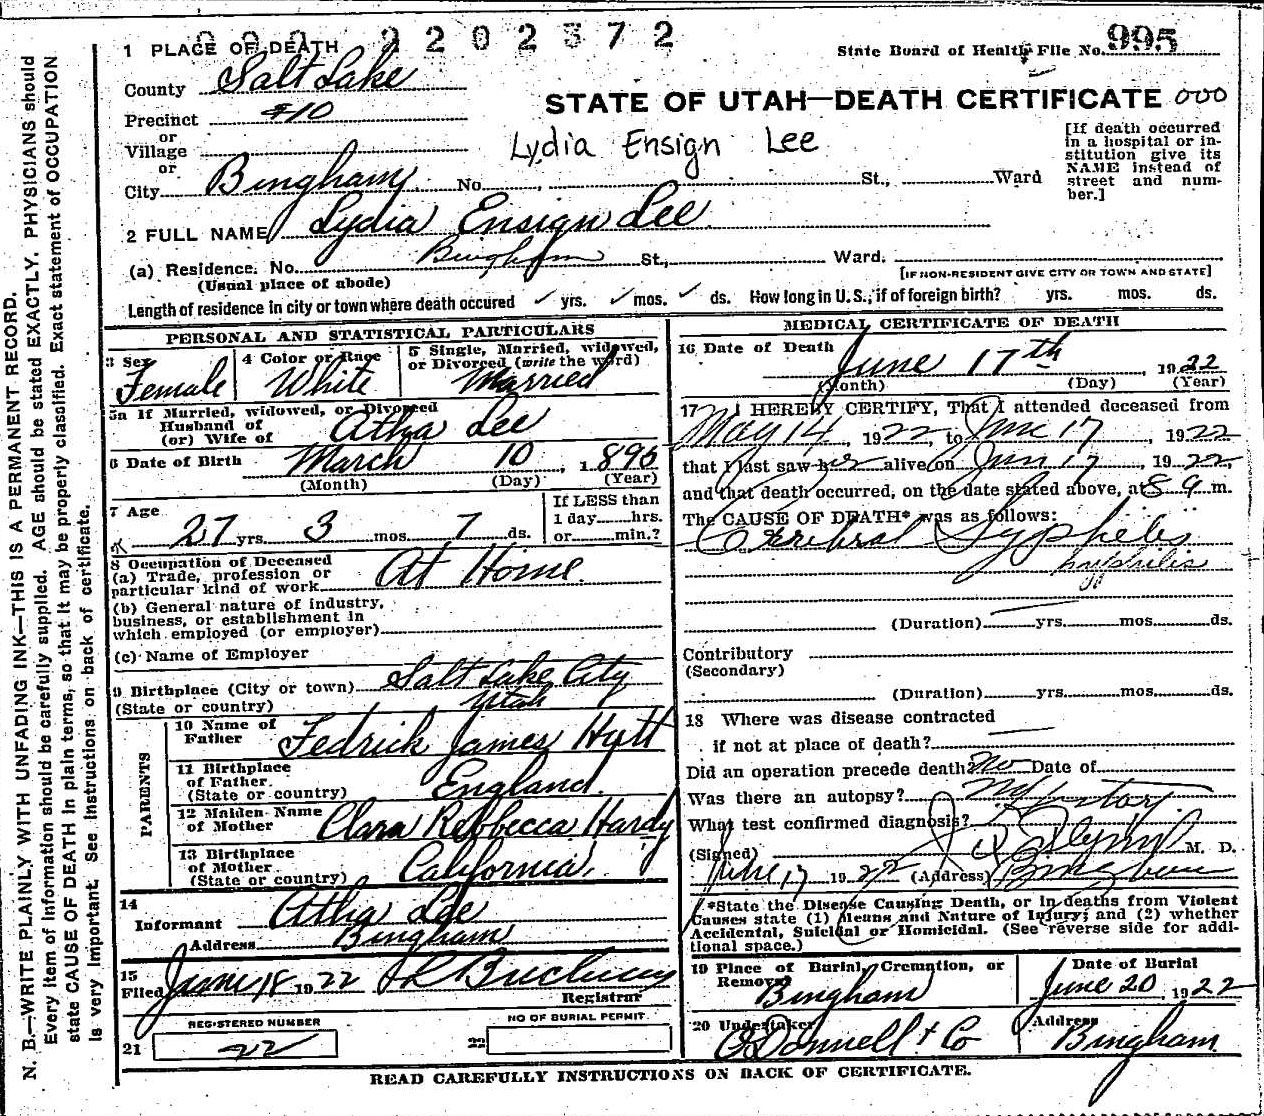 2202372
1 PLACE OF DEATH
State Board of Health File No. 995
County Salt Lake
STATE OF UTAH—DEATH CERTIFICATE 000
Precinct #10
or
Village
or
Lydia Ensign Lee
[If death occurred
in a hospital or in-
stitution give its
NAME instead of
street and num-
ber.]
City Bingham No. St., Ward
2 FULL NAME Lydia Ensign Lee
(a) Residence. No. Bingham St., Ward.
(Usual place of abode)
[IF NON-RESIDENT GIVE CITY OR TOWN AND STATE]
Length of residence in city or town where death occured ✓ yrs. ✓ mos. ✓ ds. How long in U. S., if of foreign birth? yrs. mos. ds.
PERSONAL AND STATISTICAL PARTICULARS
3 Sex
Female
4 Color or Race
White
5 Single, Married, widowed,
or Divorced (write the word)
Married
5a If Married, widowed, or Divorced
Husband of
(or) Wife of Atha Lee
6 Date of Birth March 10, 1895
(Month) (Day) (Year)
7 Age
27 yrs. 3 mos. 7 ds.
If LESS than
1 day hrs.
or min.?
8 Occupation of Deceased
(a) Trade, profession or
particular kind of work At Home
(b) General nature of industry,
business, or establishment in
which employed (or employer)
(c) Name of Employer
9 Birthplace (City or town) Salt Lake City
(State or country) Utah
PARENTS
10 Name of
Father Fedrick James Hytt
11 Birthplace
of Father
(State or country) England
12 Maiden Name
of Mother Clara Rebbecca Hardy
13 Birthplace
of Mother
(State or country) California
14
Informant Atha Lee
Address Bingham
15
Filed June 18 1922
Registrar
REGISTERED NUMBER
21 22
NO OF BURIAL PERMIT
22
MEDICAL CERTIFICATE OF DEATH
16 Date of Death June 17th, 1922
(Month) (Day) (Year)
17 I HEREBY CERTIFY, That I attended deceased from
May 14, 1922, to Jun 17, 1922
that I last saw her alive on Jun 17, 1922,
and that death occurred, on the date stated above, at 8 9 m.
The CAUSE OF DEATH* was as follows:
Cerebral Syphelis
syphilis
(Duration) yrs. mos. ds.
Contributory
(Secondary)
(Duration) yrs. mos. ds.
18 Where was disease contracted
if not at place of death?
Did an operation precede death? No Date of
Was there an autopsy? No
What test confirmed diagnosis? History
(Signed) Flynn M. D.
June 17 1922 (Address) Bingham
*State the Disease Causing Death, or in deaths from Violent
Causes state (1) Means and Nature of Injury; and (2) whether
Accidental, Suicidal or Homicidal. (See reverse side for addi-
tional space.)
19 Place of Burial, Cremation, or
Removal
Bingham
Date of Burial
June 20, 1922
20 Undertaker
O'Donnell + Co
Address
Bingham
READ CAREFULLY INSTRUCTIONS ON BACK OF CERTIFICATE.
N. B.—WRITE PLAINLY WITH UNFADING INK—THIS IS A PERMANENT RECORD.
Every item of information should be carefully supplied. AGE should be stated EXACTLY. PHYSICIANS should
state CAUSE OF DEATH in plain terms, so that it may be properly classified. Exact statement of OCCUPATION
is very important. See instructions on back of certificate.